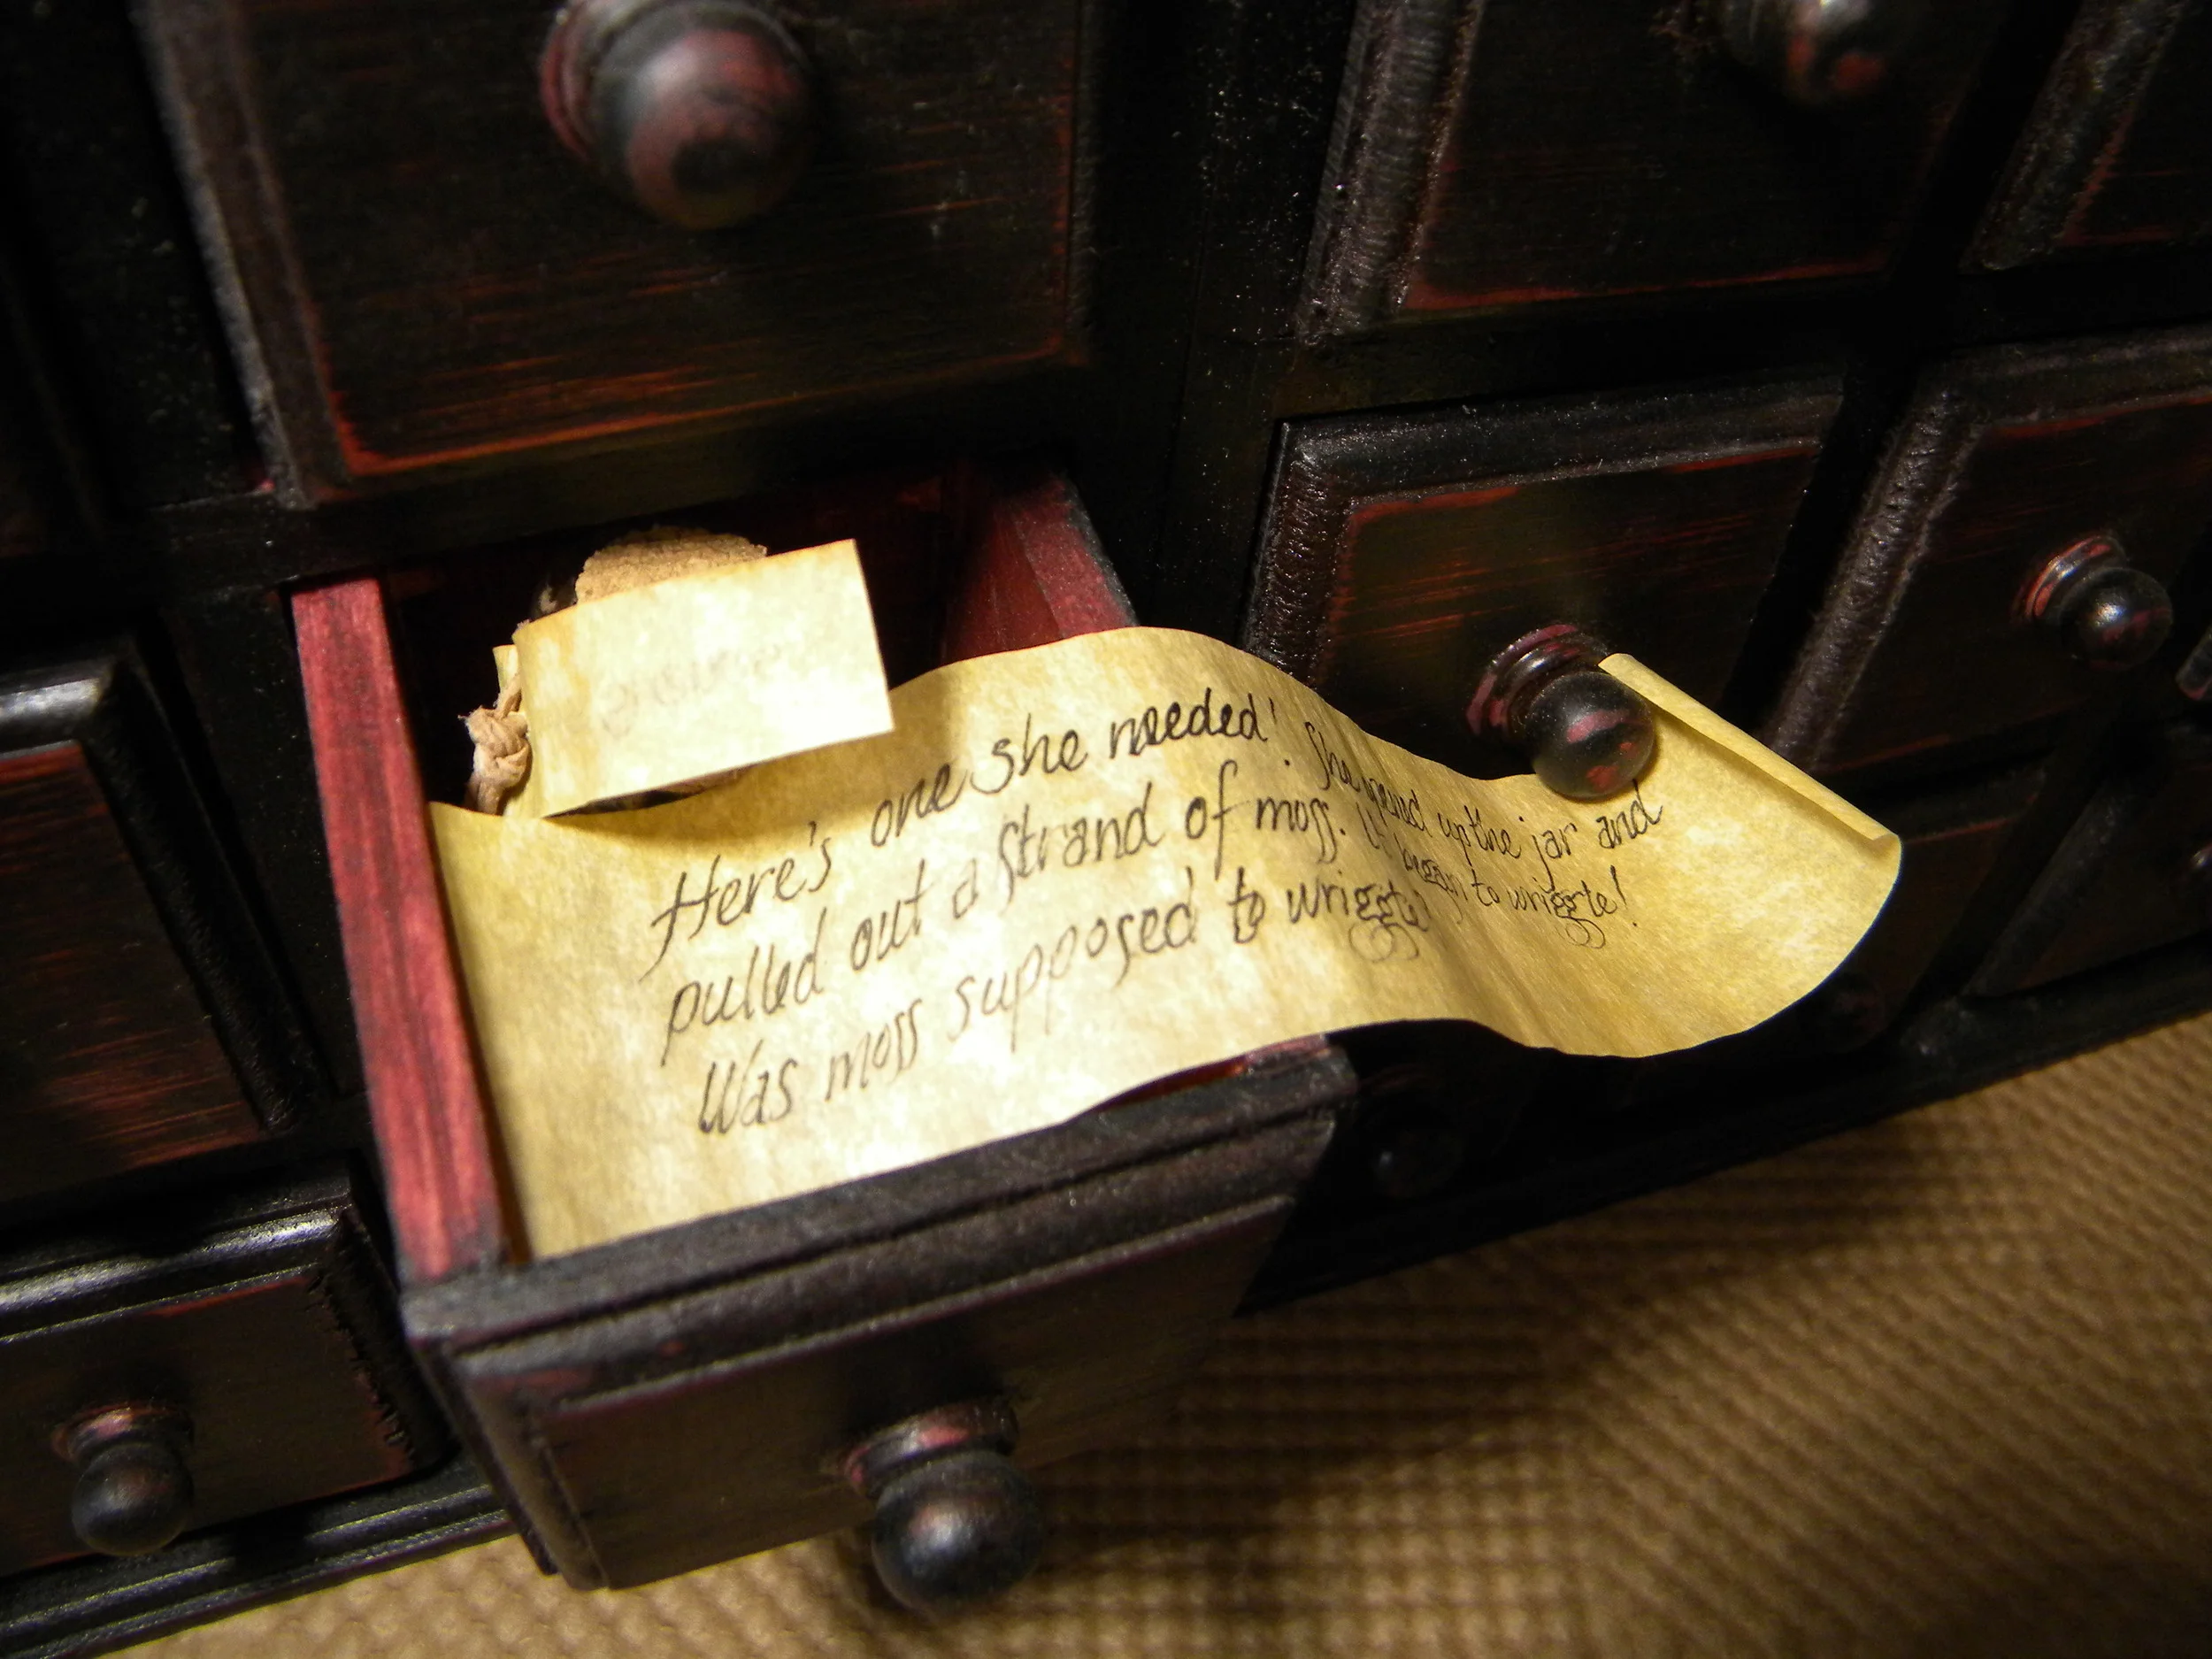 Here's one she needed! She opened up the jar and
pulled out a strand of moss. It began to wriggle!
Was moss supposed to wriggle?